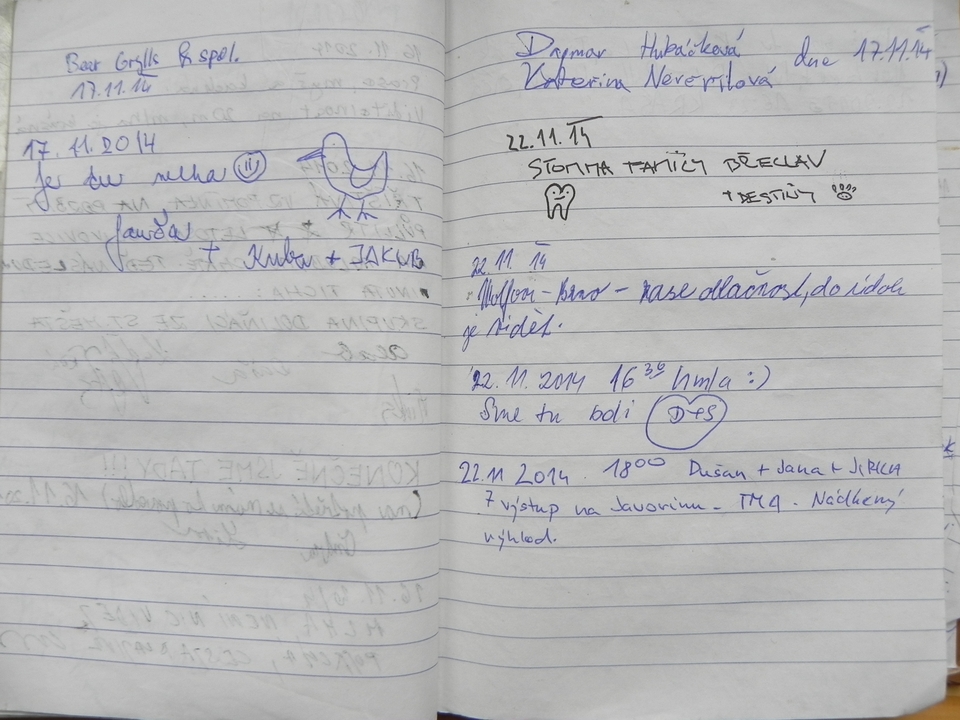 Bear Grylls & spol.
17.11.14
17.11.2014
je tu mlha
Jančar
+ Kuba + JAKUB
Dagmar Hubáčková dne 17.11.14
Kateřina Neveřilová
22.11.14
STOMMA FAMILY BŘECLAV
+ DESTINY
22.11.14
Wolfovi - Brno - zase oblačnost, do údolí
je vidět.
22.11.2014 16³⁰ hmla :)
Sme tu boli D+S
22.11.2014. 18⁰⁰ Dušan + Jana + JIRKA
7 výstup na Javorinu - TMA. Nádherný
výhled.